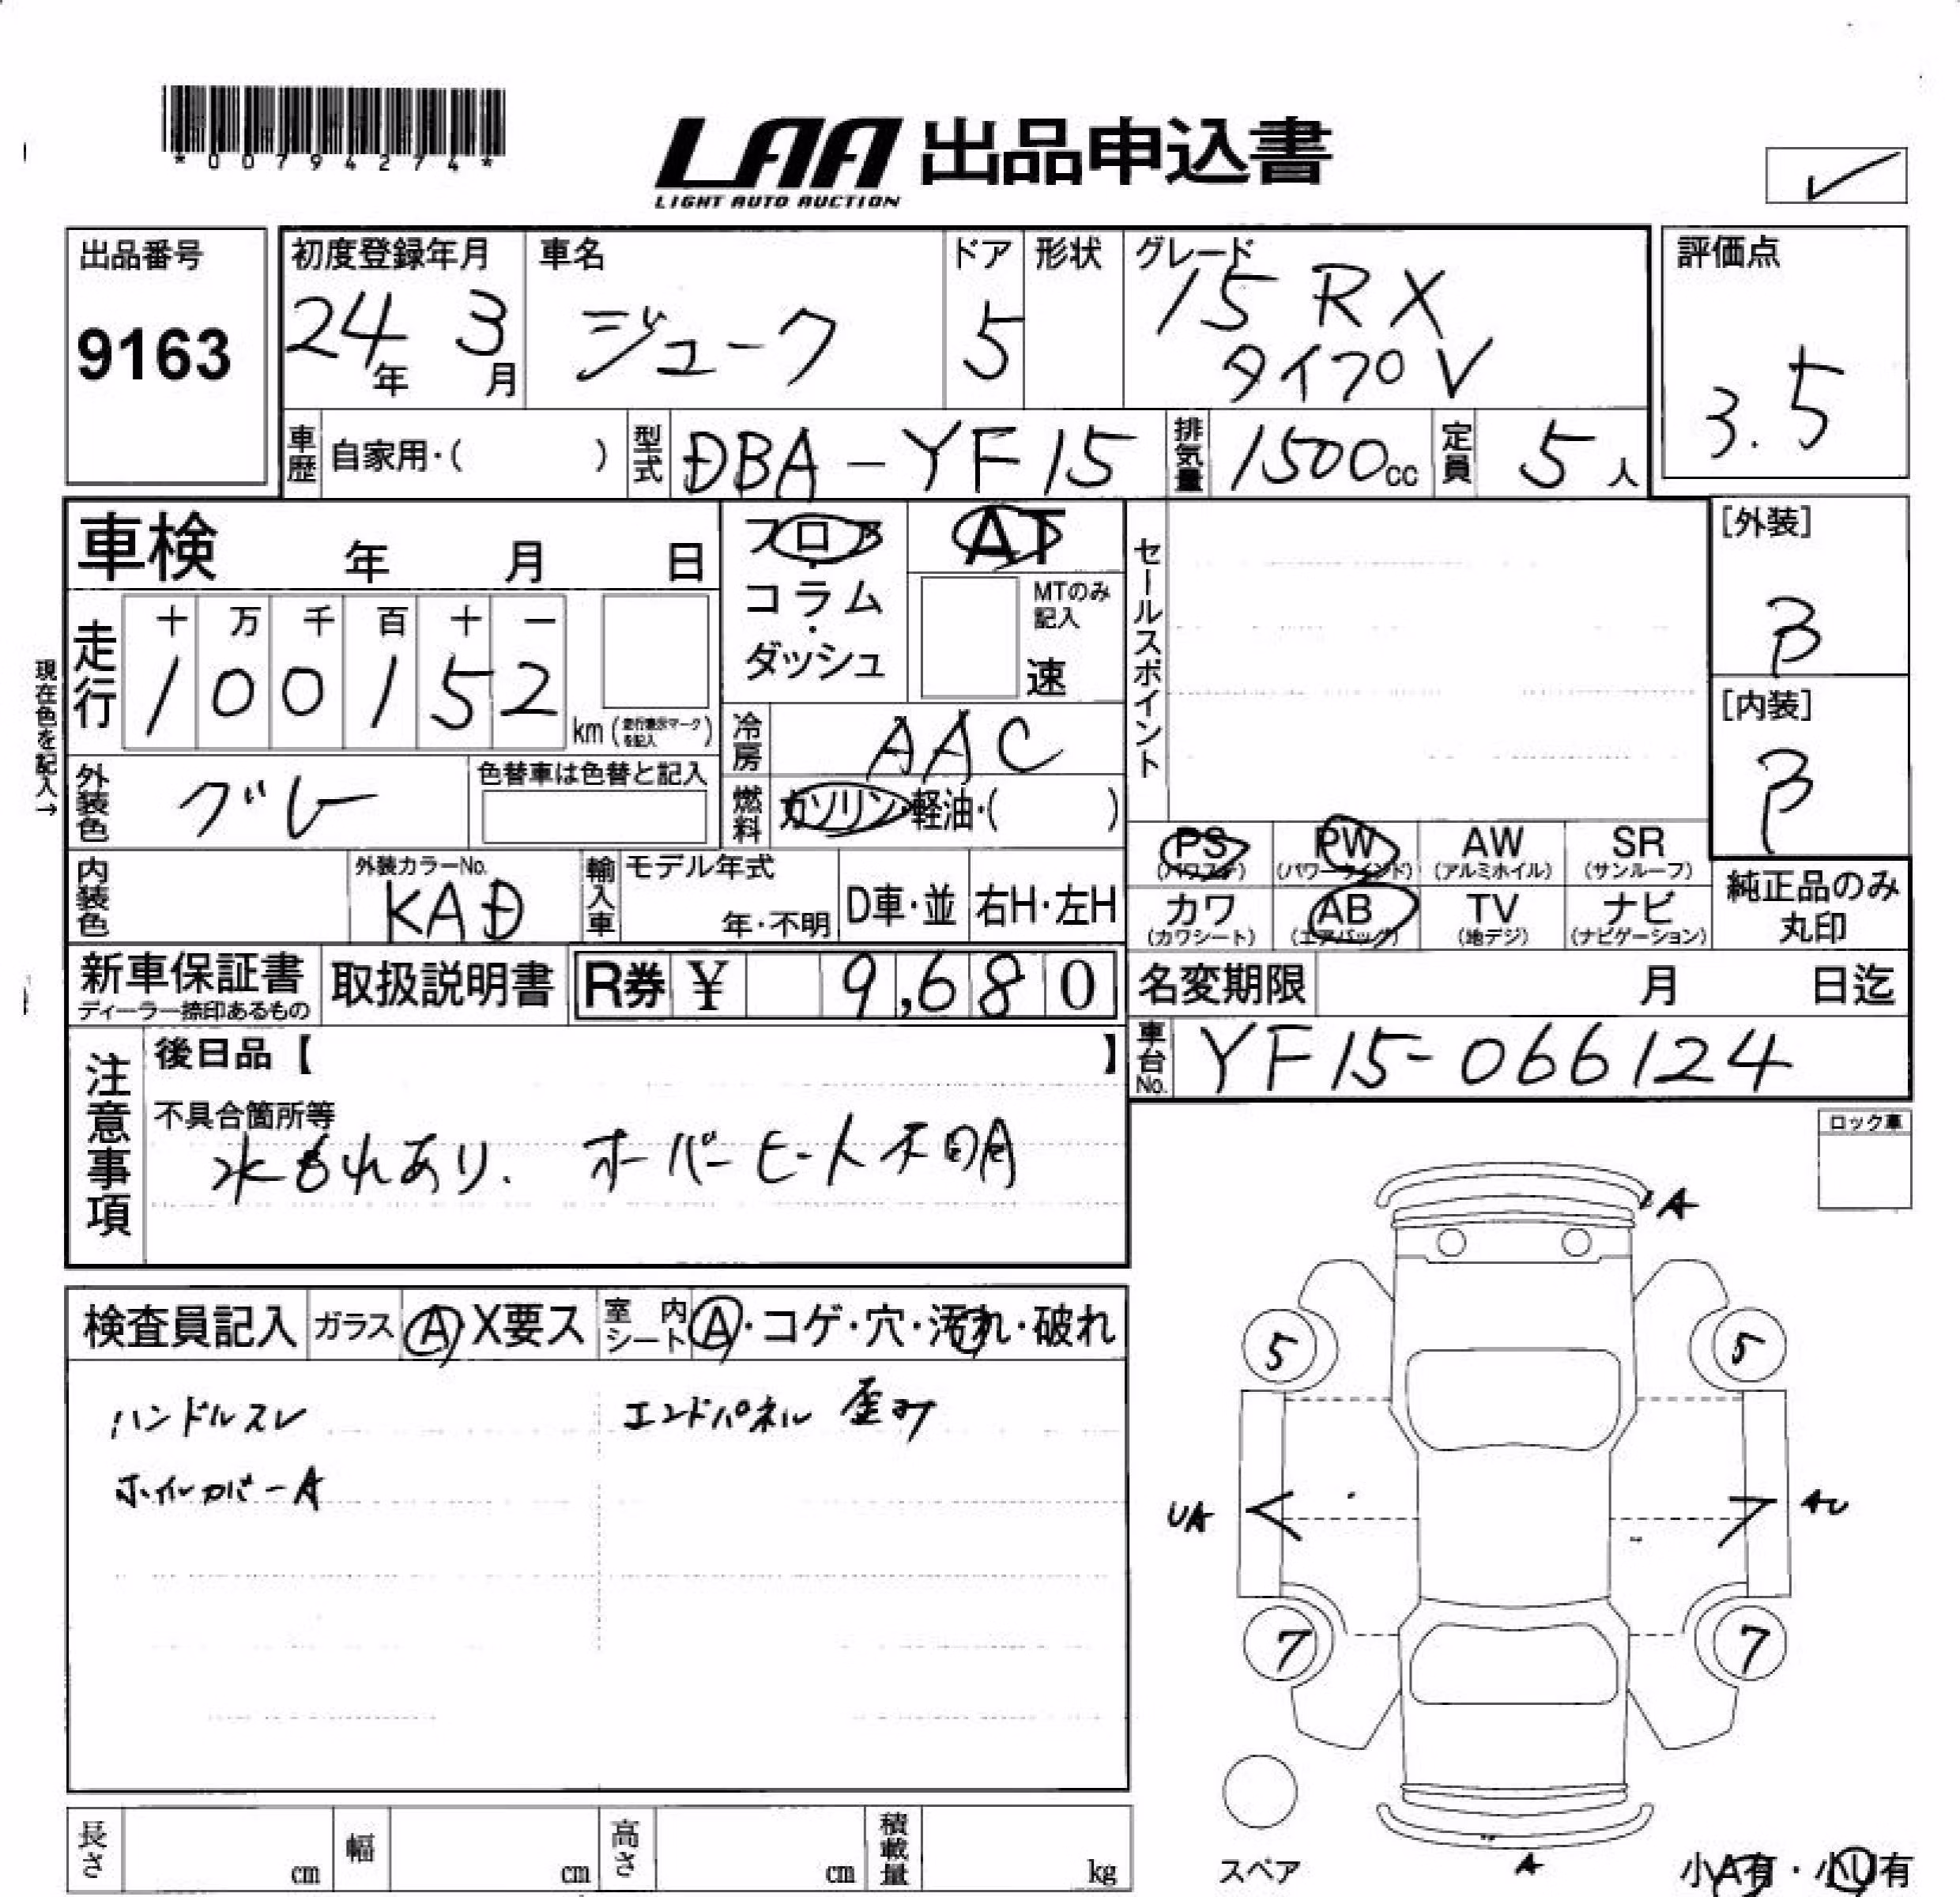 *00794274*
LAA 出品申込書
LIGHT AUTO AUCTION
出品番号
9163
初度登録年月
24年 3月
車名
ジューク
ドア
5
形状
グレード
15RX
タイプV
評価点
3.5
車歴 自家用・( )
型式 DBA-YF15
排気量 1500cc
定員 5人
車検 年 月 日
フロア・コラム・ダッシュ
AT
MTのみ記入
速
セールスポイント
[外装]
B
[内装]
B
現在色を記入→
走行
十 万 千 百 十 一
1 0 0 1 5 2
km (走行表示マークを記入)
冷房 AAC
燃料 ガソリン・軽油・( )
外装色 グレー
色替車は色替と記入
内装色
外装カラーNo.
KAD
輸入車
モデル年式
年・不明
D車・並
右H・左H
PS (パワステ)
PW (パワーウインド)
AW (アルミホイル)
SR (サンルーフ)
カワ (カワシート)
AB (エアバッグ)
TV (地デジ)
ナビ (ナビゲーション)
純正品のみ
丸印
新車保証書
ディーラー捺印あるもの
取扱説明書
R券 ¥ 9,680
名変期限 月 日迄
車台No. YF15-066124
注意事項
後日品【 】
不具合箇所等
水もれあり. オーバーヒート不明
ロック車
A
検査員記入
ガラス A X要ス
室内シート A・コゲ・穴・汚れ・破れ
ハンドルスレ
エンドパネル 歪み
ホイルカバーA
5 5
UA
AU
7 7
スペア
A
小A有・小U有
長さ cm
幅 cm
高さ cm
積載量 kg